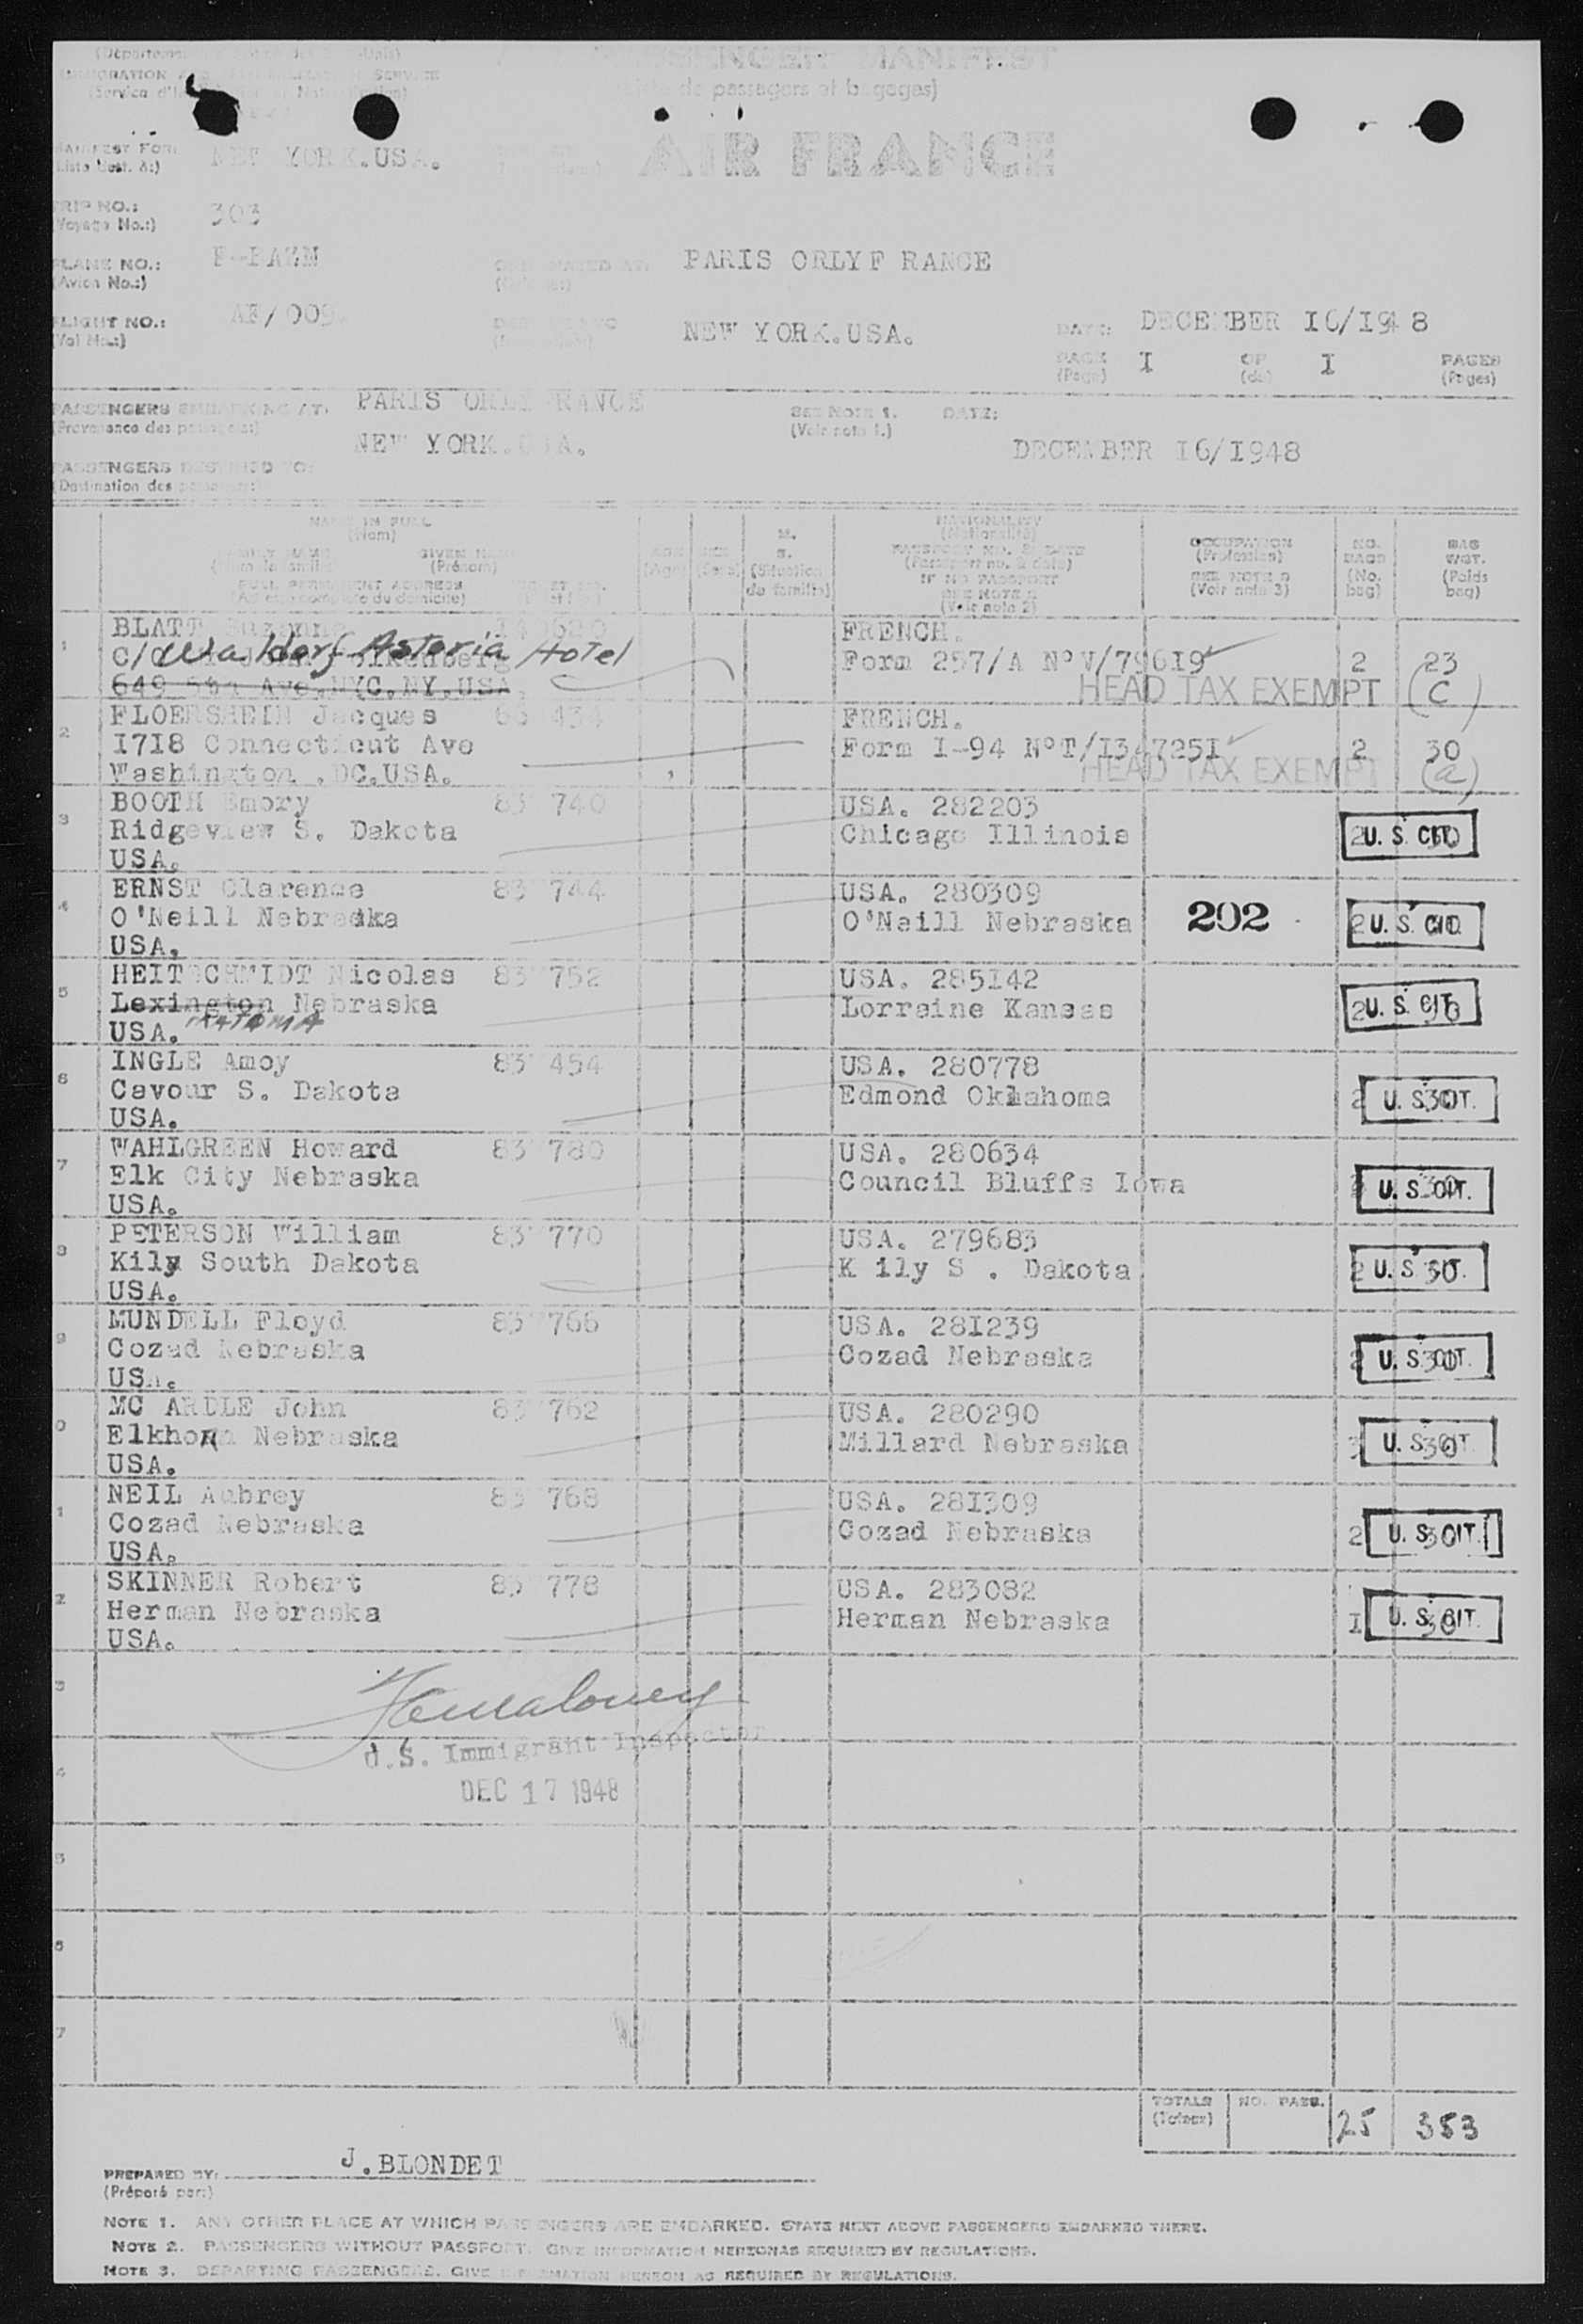 PASSENGER MANIFEST
IMMIGRATION SERVICE
(Service
de passagers et bagages)
AIR FRANCE
MANIFEST FOR:
NEW YORK.USA.
(Liste Dest. à:)
TRIP NO.:
303
(Voyage No.:)
PLANE NO.:
(Avion No.:)
PARIS ORLYF RANCE
FLIGHT NO.:
AF/009
(Vol No.:)
NEW YORK.USA.
DATE:
DECEMBER I6/I948
PAGE I OF I PAGES
(Page) (de) (Pages)
PASSENGERS EMBARKING AT:
PARIS ORLY FRANCE
(Provenance des passagers:)
SEE NOTE 1.
(Voir nota 1.)
DATE:
NEW YORK.USA.
DECEMBER I6/I948
PASSENGERS DESTINED TO:
(Destination des passagers:)
NAME IN FULL
(Nom)
FAMILY NAME GIVEN NAME
(Nom de famille) (Prénom)
FULL PERMANENT ADDRESS
(Adresse complète du domicile)
AGE
(Age)
SEX
(Sexe)
M.
S.
(Situation
de famille)
NATIONALITY
(Nationalité)
PASSPORT NO. & DATE
(Passeport no. & date)
IF NO PASSPORT
SEE NOTE 2
(Voir nota 2)
OCCUPATION
(Profession)
SEE NOTE 3
(Voir nota 3)
NO.
BAGS
(No.
bag)
BAG
WGT.
(Poids
bag)
1 BLATT Suzanne FRENCH.
C/O Waldorf Astoria Hotel Form 257/A N°V/79619 2 23
649 5th Ave.NYC.NY.USA HEAD TAX EXEMPT (c)
2 FLOERSHEIM Jacques 434 FRENCH.
I7I8 Connecticut Ave Form I-94 N°T/I34725I 2 30
Washington .DC.USA. HEAD TAX EXEMPT (a)
3 BOOTH Emory 83 740 USA. 282203
Ridgeview S. Dakota Chicago Illinois 2 U. S. CIT. 30
USA.
4 ERNST Clarence 83 744 USA. 280309
O'Neill Nebraska O'Neill Nebraska 202 2 U. S. CIT.
USA.
5 HEITSCHMIDT Nicolas 83 752 USA. 285I42
Lexington Nebraska Lorraine Kansas 2 U. S. CIT.
USA.
6 INGLE Amoy 83 454 USA. 280778
Cavour S. Dakota Edmond Oklahoma 2 U. S. CIT. 30
USA.
7 WAHLGREEN Howard 83 780 USA. 280634
Elk City Nebraska Council Bluffs Iowa U. S. CIT. 30
USA.
8 PETERSON William 83 770 USA. 279683
Kily South Dakota K ily S . Dakota 2 U. S. CIT. 30
USA.
9 MUNDELL Floyd 83 766 USA. 28I239
Cozad Nebraska Cozad Nebraska 2 U. S. CIT. 30
USA.
0 MC ARDLE John 83 762 USA. 280290
Elkhorn Nebraska Millard Nebraska 3 U. S. CIT. 30
USA.
1 NEIL Aubrey 83 768 USA. 28I309
Cozad Nebraska Cozad Nebraska 2 U. S. CIT. 30
USA.
2 SKINNER Robert 83 778 USA. 283082
Herman Nebraska Herman Nebraska I U. S. CIT. 30
USA.
3
U.S. Immigrant Inspector
4
DEC 17 1948
5
6
7
TOTALS NO. PASS. 25 353
(Totaux)
J.BLONDET
PREPARED BY:
(Préparé par:)
NOTE 1. ANY OTHER PLACE AT WHICH PASSENGERS ARE EMBARKED. STATE NEXT ABOVE PASSENGERS EMBARKED THERE.
NOTE 2. PASSENGERS WITHOUT PASSPORT. GIVE INFORMATION HEREON AS REQUIRED BY REGULATIONS.
NOTE 3. DEPARTING PASSENGERS. GIVE INFORMATION HEREON AS REQUIRED BY REGULATIONS.